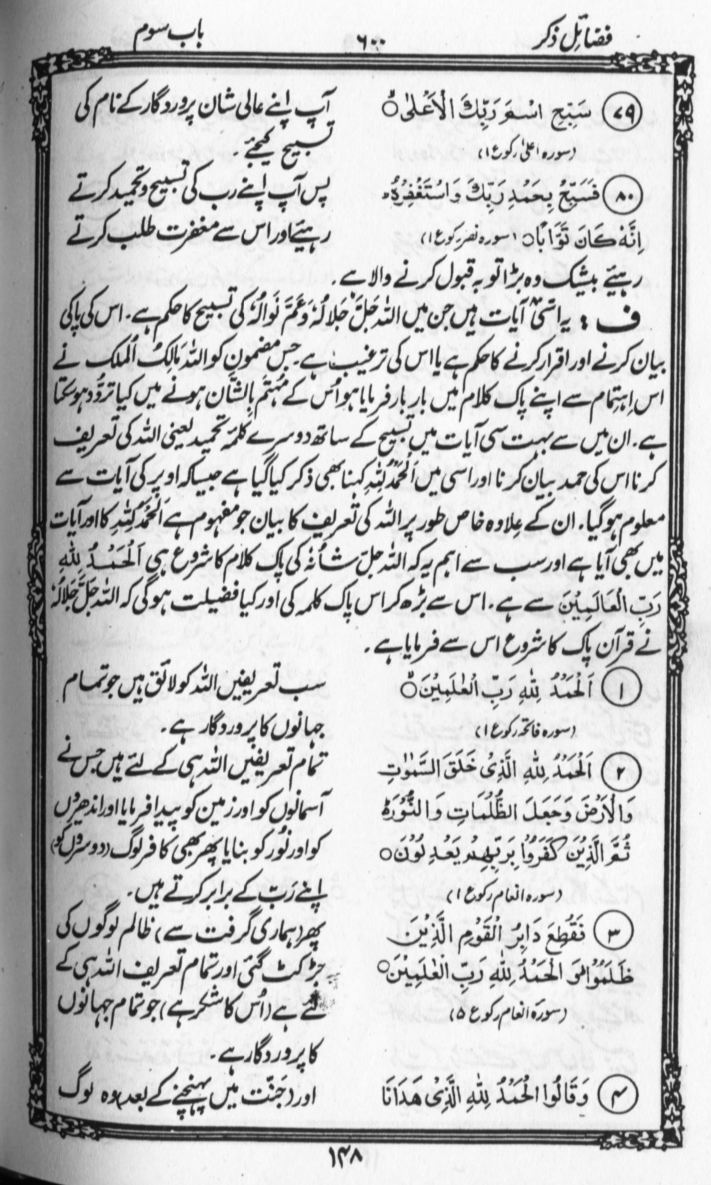 فضائل ذکر ۶۰۰ باب سوم
۷۹ سَبِّحِ اسْمَ رَبِّكَ الْاَعْلٰى ۝ آپ اپنے عالی شان پروردگار کے نام کی
(سورہ اعلیٰ رکوع ۱) تسبیح کیجئے
۸۰ فَسَبِّحْ بِحَمْدِ رَبِّكَ وَاسْتَغْفِرْهُ پس آپ اپنے رب کی تسبیح و تحمید کرتے
اِنَّهٗ كَانَ تَوَّابًا ۝ (سورہ نصر رکوع ۱) رہیئے اور اس سے مغفرت طلب کرتے
رہیئے بیشک وہ بڑا توبہ قبول کرنے والا ہے۔
ف : یہ اسّی آیات ہیں جن میں اللہ جَلَّ جَلَالُہٗ وَعَمَّ نَوَالُہٗ کی تسبیح کا حکم ہے۔ اس کی پاکی
بیان کرنے اور اقرار کرنے کا حکم ہے یا اس کی ترغیب ہے۔ جس مضمون کو اللہ مَالِکُ الْمُلک نے
اس اہتمام سے اپنے پاک کلام میں بار بار فرمایا ہو اُس کے مُہتَم بِالشَّان ہونے میں کیا تردُّد ہو سکتا
ہے۔ ان میں سے بہت سی آیات میں تسبیح کے ساتھ دوسرے کلمۂ تحمید یعنی اللہ کی تعریف
کرنا اس کی حمد بیان کرنا اور اسی میں اَلْحَمْدُ لِلّٰہِ کہنا بھی ذکر کیا گیا ہے جیسا کہ اوپر کی آیات سے
معلوم ہو گیا۔ ان کے علاوہ خاص طور پر اللہ کی تعریف کا بیان جو مفہوم ہے اَلْحَمْدُ لِلّٰہِ کا اور آیات
میں بھی آیا ہے اور سب سے اہم یہ کہ اللہ جل شانُہٗ کی پاک کلام کا شروع ہی اَلْحَمْدُ لِلّٰهِ
رَبِّ الْعَالَمِيْنَ سے ہے۔ اس سے بڑھ کر اس پاک کلمہ کی اور کیا فضیلت ہوگی کہ اللہ جَلَّ جَلَالُہٗ
نے قرآن پاک کا شروع اس سے فرمایا ہے۔
۱ اَلْحَمْدُ لِلّٰهِ رَبِّ الْعٰلَمِيْنَ ۝ سب تعریفیں اللہ کو لائق ہیں جو تمام
(سورہ فاتحہ رکوع ۱) جہانوں کا پروردگار ہے۔
۲ اَلْحَمْدُ لِلّٰهِ الَّذِىْ خَلَقَ السَّمٰوٰتِ تمام تعریفیں اللہ ہی کے لئے ہیں جس نے
وَالْاَرْضَ وَجَعَلَ الظُّلُمَاتِ وَالنُّوْرَ آسمانوں کو اور زمین کو پیدا فرمایا اور اندھیروں
ثُمَّ الَّذِيْنَ كَفَرُوْا بِرَبِّهِمْ يَعْدِلُوْنَ ۝ کو اور نُور کو بنایا پھر بھی کافر لوگ (دوسروں کو)
(سورہ انعام رکوع ۱) اپنے رَبّ کے برابر کرتے ہیں۔
۳ فَقُطِعَ دَابِرُ الْقَوْمِ الَّذِيْنَ پھر (ہماری گرفت سے) ظالم لوگوں کی
ظَلَمُوْا وَ الْحَمْدُ لِلّٰهِ رَبِّ الْعٰلَمِيْنَ ۝ جڑ کٹ گئی اور تمام تعریف اللہ ہی کے
(سورۃ انعام رکوع ۵) لئے ہے (اُس کا شکر ہے) جو تمام جہانوں
کا پروردگار ہے۔
۴ وَقَالُوا الْحَمْدُ لِلّٰهِ الَّذِىْ هَدَانَا اور (جنّت میں پہنچنے کے بعد) وہ لوگ
۱۴۸